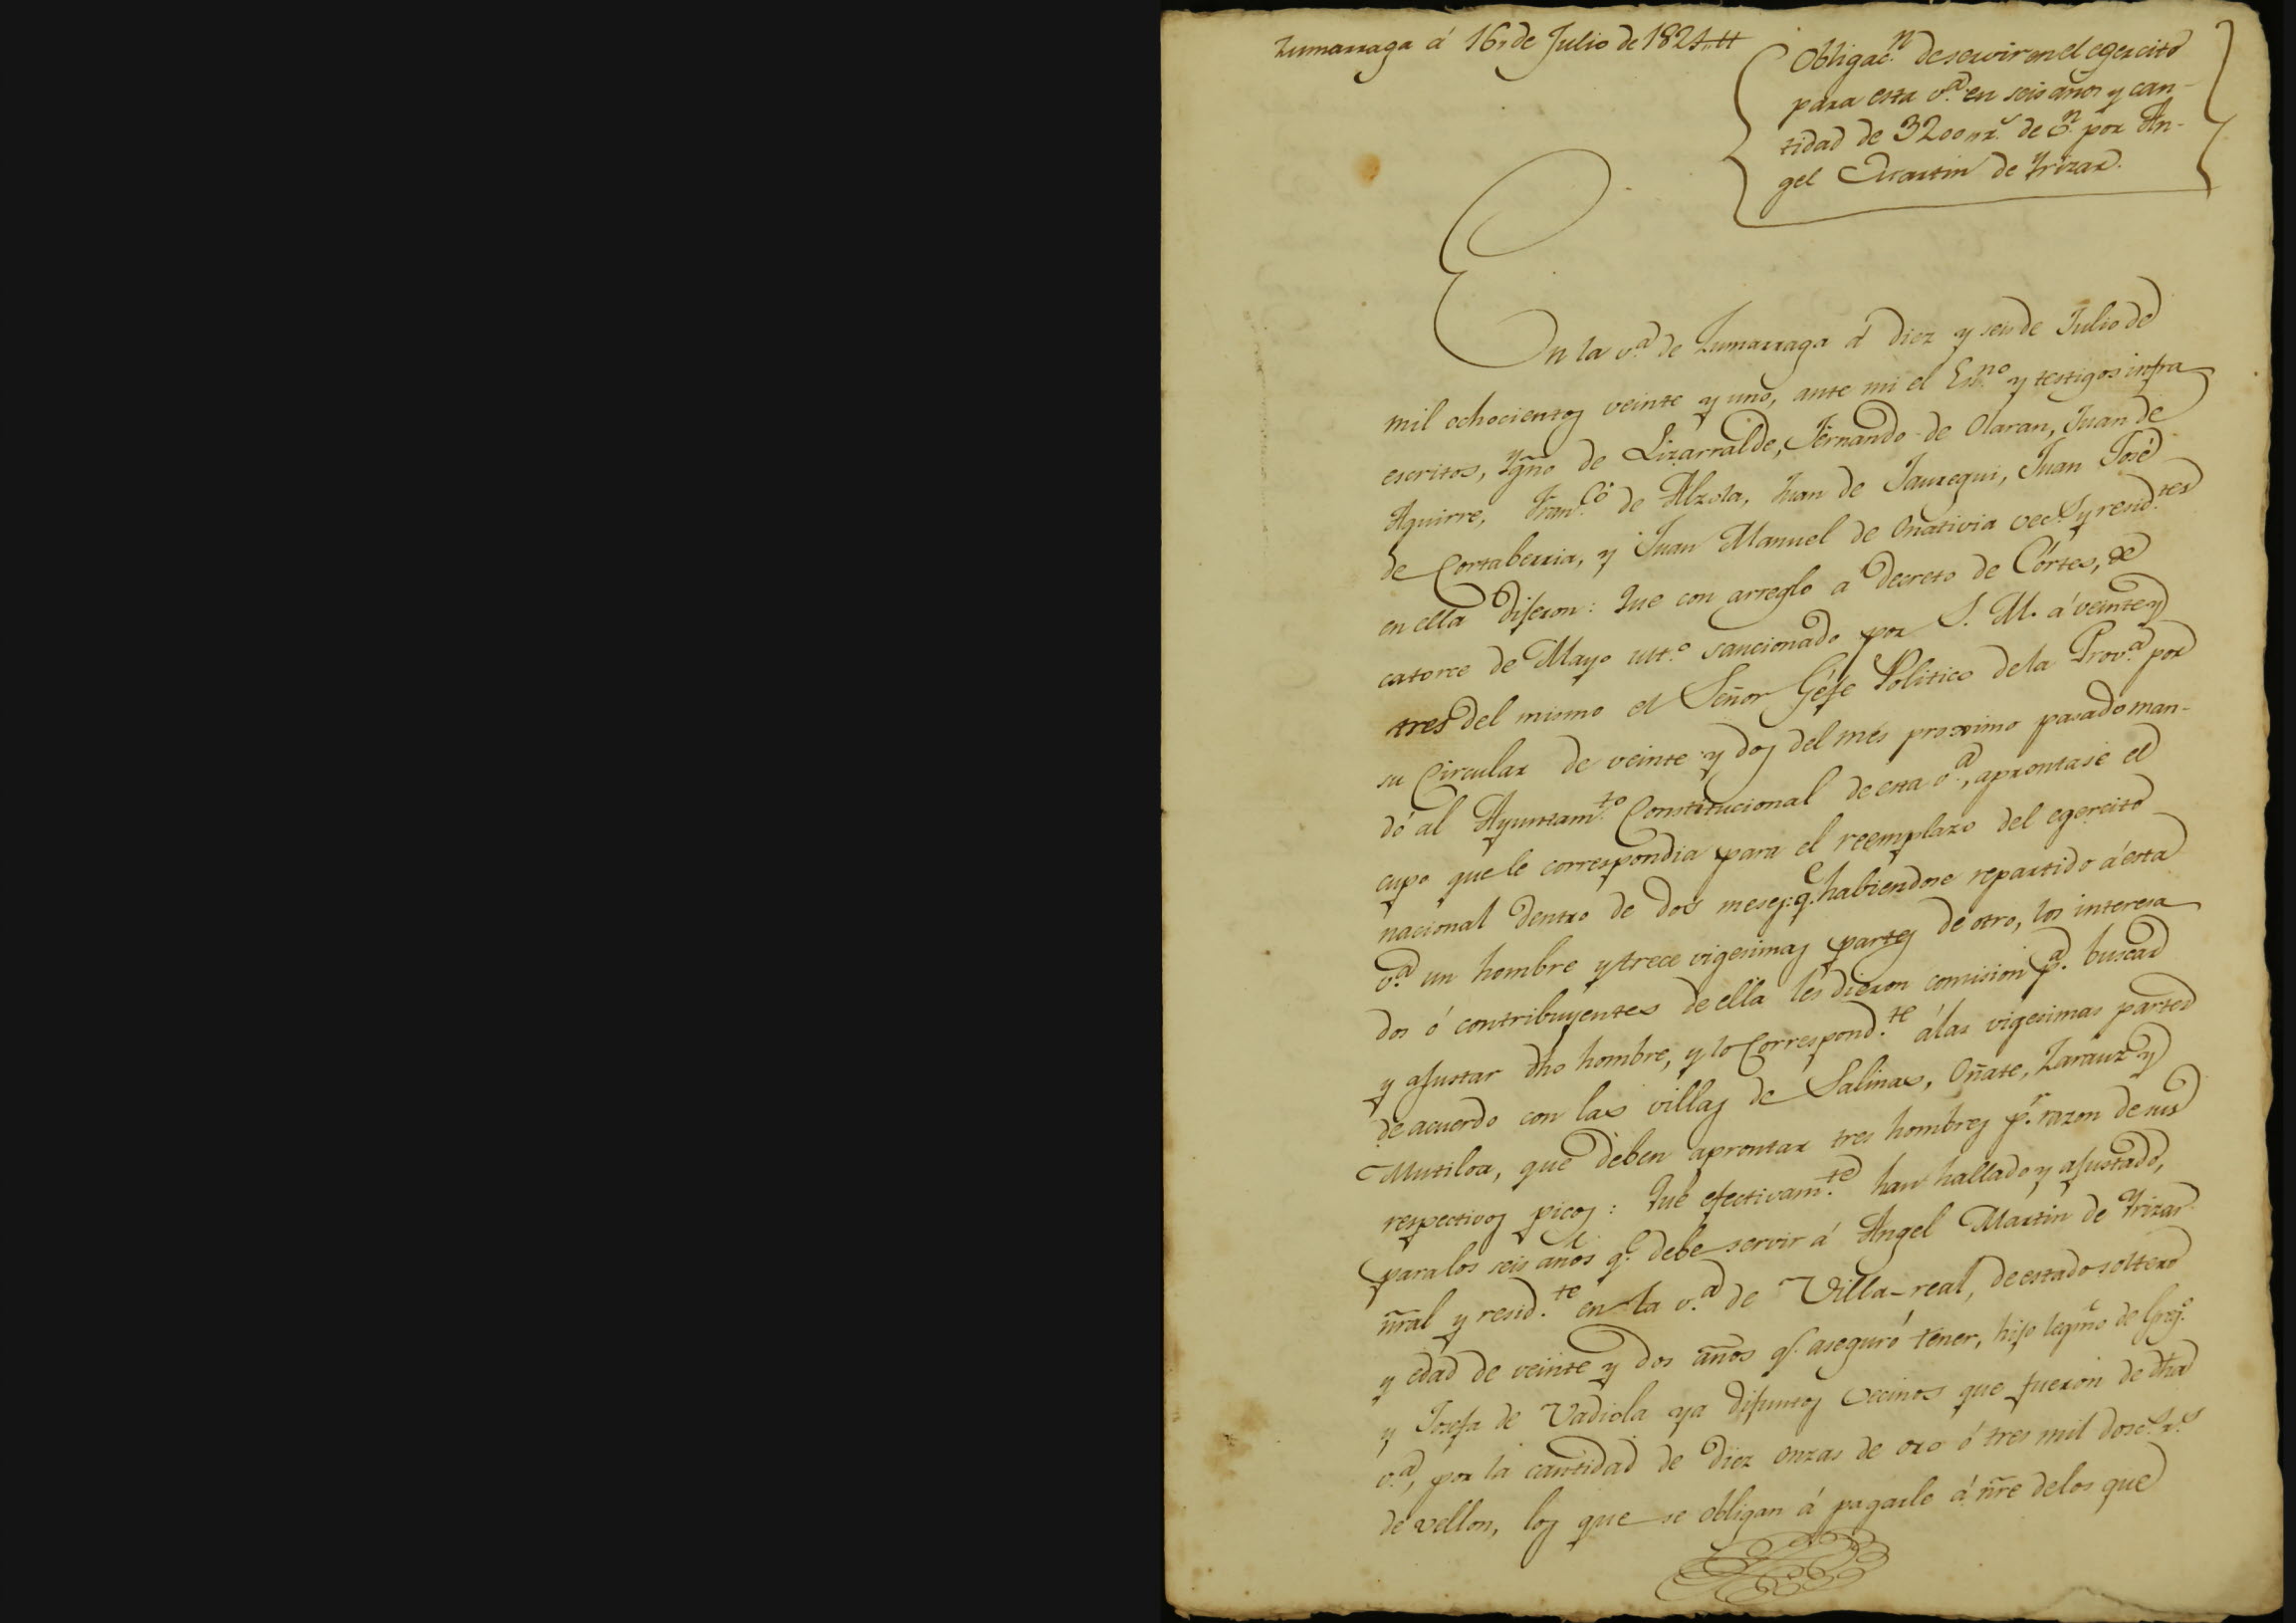 Zumarraga á 16, de Julio de 1821.
Obligac.n de servir en el egercito
para esta v.a en seis años y can-
tidad de 3200 rr.s de v.n por An-
gel Martin de Yrizar.
En la v.a de Zumarraga á diez y seis de Julio de
mil ochocientos veinte y uno, ante mi el Es.no y testigos infra
escritos, Ygño de Lizarralde, Fernando de Olaran, Juan de
Aguirre, Fran.co de Alzola, Juan de Jauregui, Juan José
de Cortaberria, y Juan Manuel de Oñativia vec.s y resid.tes
en ella dijeron: Que con arreglo a decreto de Córtes, de
catorce de Mayo ult.o sancionado por S. M. á veinte y
tres del mismo el Señor Géfe Politico de la Prov.a por
su Circular de veinte y dos del més proximo pasado man-
dó al Ayuntam.to Constitucional de esta v.a, aprontase el
cupo que le correspondia para el reemplazo del egercito
nacional dentro de dos meses: q.e habiendose repartido á esta
v.a un hombre y trece vigesimas partes de otro, los interesa
dos ó contribuyentes de ella les dieron comision p.a buscar
y ajustar dho hombre, y lo Correspond.te á las vigesimas partes
de acuerdo con las villas de Salinas, Oñate, Zarauz y
Mutiloa, que deben aprontar tres hombres p.r razon de sus
respectivos picos: Que efectivam.te han hallado y ajustado,
para los seis años q.e debe servir á Angel Martin de Yrizar
ñral y resid.te en la v.a de Villa-real, de estado soltero
y edad de veinte y dos años q.e aseguró tener, hijo legmo de Greg.o
y Josefa de Vadiola ya difuntos vecinos que fueron de dha
v.a, por la cantidad de diez onzas de oro ó tres mil dosc.s r.s
de vellon, los que se obligan á pagarle á ñre de los que